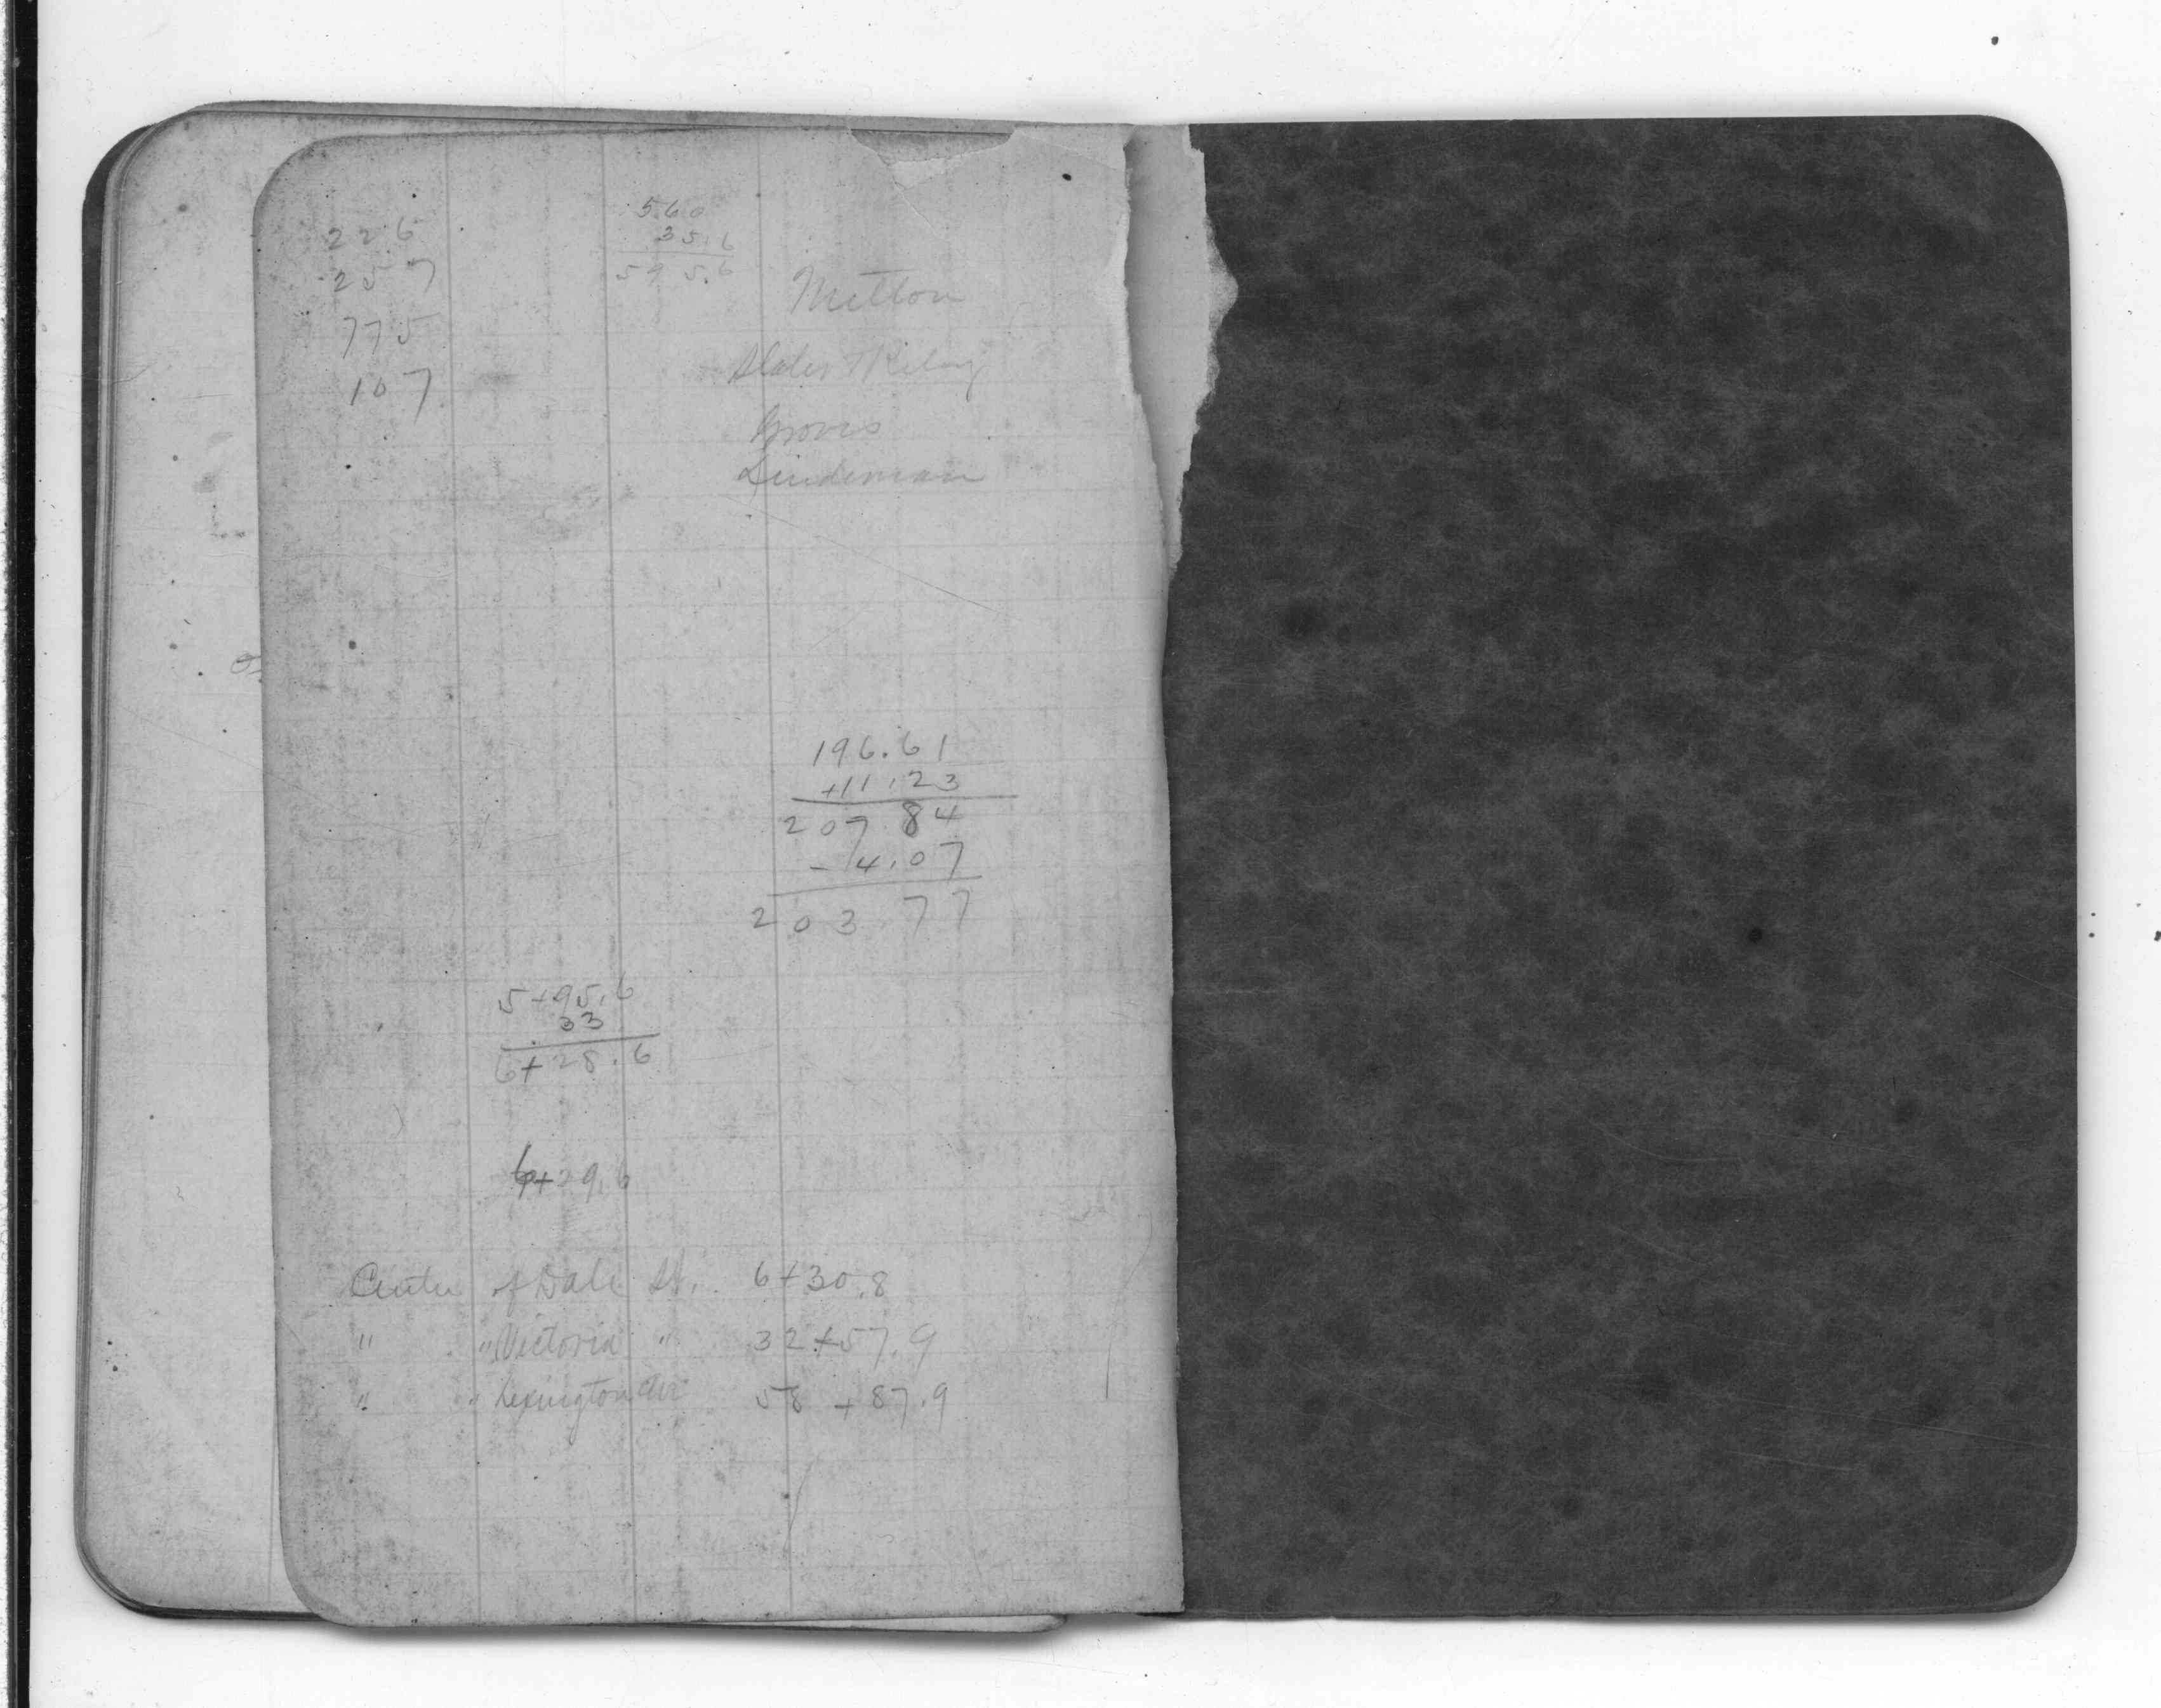 560
35.6
595.6
226
257
775
107
Mitton
Slater & Riley
Groves
Lindeman
196.61
+11.23
207.84
- 4.07
203.77
5+95.6
33
6+28.6
6+29.6
Center of Dale St. 6+30.8
" " Victoria " 32+57.9
" " Lexington Ave 58+87.9